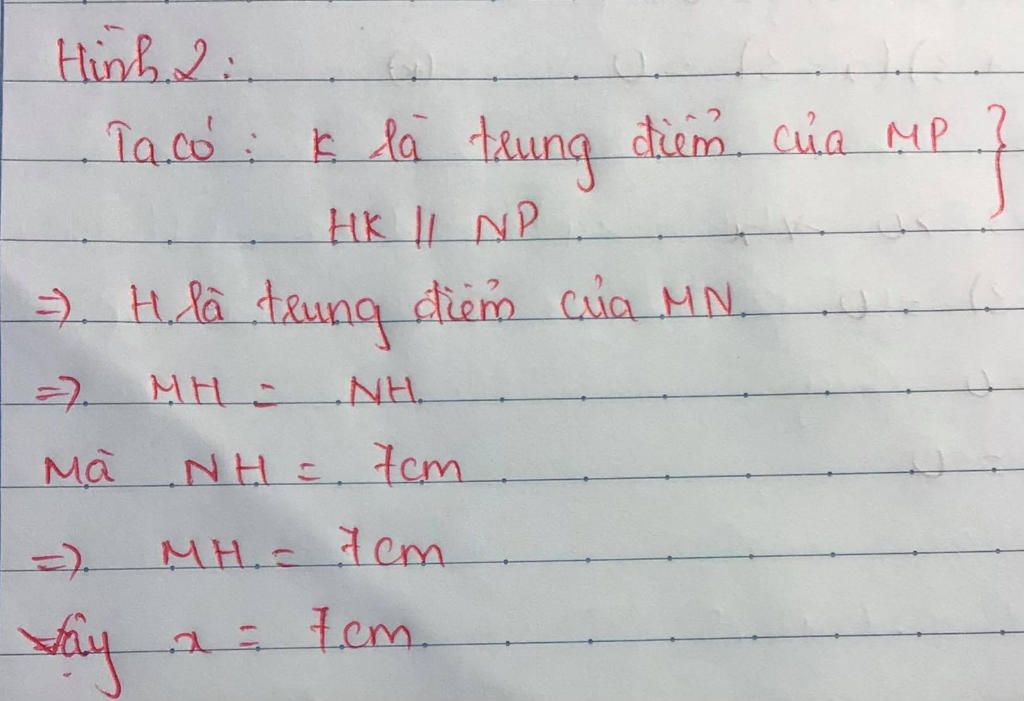 Hình 2:
Ta có: K là trung điểm của MP }
HK // NP
=> H là trung điểm của MN
=> MH = NH
Mà NH = 7cm
=> MH = 7cm
Vậy x = 7cm